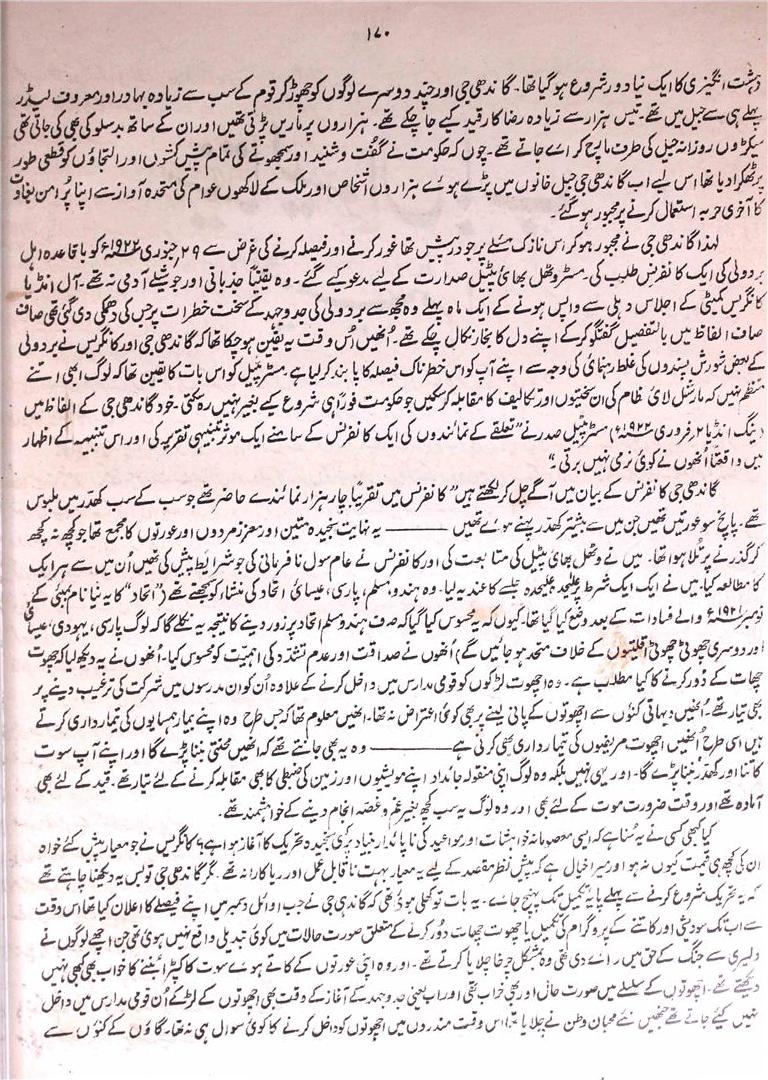 ۱۷۰
دہشت انگیزی کا ایک نیا دور شروع ہو گیا تھا۔ گاندھی جی اور چند دوسرے لوگوں کو چھوڑ کر قوم کے سب سے زیادہ بہادر اور معروف لیڈر
پہلے ہی سے جیل میں تھے۔ تیس ہزار سے زیادہ رضا کار قید کیے جا چکے تھے۔ ہزاروں پر ماریں پڑتی تھیں اور ان کے ساتھ بدسلوکی بھی کی جاتی تھی
سیکڑوں روزانہ جیل کی طرف مارچ کر اے جاتے تھے۔ چوں کہ حکومت نے گفت و شنید اور سمجھوتے کی تمام پیش کشوں اور التجاؤں کو قطعی طور
پر ٹھکرا دیا تھا اس لیے اب گاندھی جی جیل خانوں میں پڑے ہوئے ہزاروں اشخاص اور ملک کے لاکھوں عوام کی متحدہ آواز سے اپنا پُر امن بغاوت
کا آخری حربہ استعمال کرنے پر مجبور ہو گئے۔
لہٰذا گاندھی جی نے مجبور ہو کر اس نازک مسئلے پر جو درپیش تھا غور کرنے اور فیصلہ کرنے کی غرض سے ۲۹ جنوری ۱۹۲۲ء کو باقاعدہ اہل
بردولی کی ایک کانفرنس طلب کی۔ مسٹر وٹھل بھائی پٹیل صدارت کے لیے مدعو کیے گئے۔ وہ یقیناً جذباتی اور جوشیلے آدمی نہ تھے۔ آل انڈیا
کانگریس کمیٹی کے اجلاس دہلی سے واپس ہونے کے ایک ماہ پہلے وہ مجھ سے بردولی کی جدوجہد کے سخت خطرات پر جس کی دھمکی دی گئی تھی صاف
صاف الفاظ میں بالتفصیل گفتگو کر کے اپنے دل کا بخار نکال چکے تھے۔ اُنھیں اُس وقت یہ یقین ہو چکا تھا کہ گاندھی جی اور کانگریس نے بردولی
کے بعض شورش پسندوں کی غلط رہنمائی کی وجہ سے اپنے آپ کو اس خطرناک فیصلہ کا پابند کر لیا ہے۔ مسٹر پٹیل کو اس بات کا یقین تھا کہ لوگ ابھی اتنے
منظم نہیں کہ مارشل لائی نظام کی ان سختیوں اور تکالیف کا مقابلہ کر سکیں جو حکومت فوراً ہی شروع کیے بغیر نہیں رہ سکتی۔ خود گاندھی جی کے الفاظ میں
(ینگ انڈیا ۲ فروری ۱۹۲۲ء) مسٹر پٹیل صدر نے "تعلقے کے نمائندوں کی ایک کانفرنس کے سامنے ایک موثر تنبیہی تقریر کی اور اس تنبیہہ کے اظہار
میں واقعتاً اُنھوں نے کوئی نرمی نہیں برتی۔"
گاندھی جی کانفرنس کے بیان میں آگے چل کر لکھتے ہیں "کانفرنس میں تقریباً چار ہزار نمائندے حاضر تھے جو سب کے سب کھدر میں ملبوس
تھے۔ پانچ سو عورتیں تھیں جن میں سے بیشتر کھدر پہنے ہوئے تھیں ——— یہ نہایت سنجیدہ متین اور معزز مردوں اور عورتوں کا مجمع تھا جو کچھ نہ کچھ
کر گذرنے پر تُلا ہوا تھا۔ میں نے وٹھل بھائی پٹیل کی متابعت کی اور کانفرنس نے عام سول نافرمانی کی جو شرائط پیش کی تھیں اُن میں سے ہر ایک
کا مطالعہ کیا۔ میں نے ایک ایک شرط پر علیحدہ علیحدہ جلسے کا عندیہ لیا۔ وہ ہندو، مسلم، پارسی، عیسائی اتحاد کی منشاء کو سمجھتے تھے ("اتحاد" کا یہ نیا نام بمبئی کے
نومبر ۱۹۲۱ء والے فسادات کے بعد وضع کیا گیا تھا۔ کیوں کہ یہ محسوس کیا گیا کہ صرف ہندو مسلم اتحاد پر زور دینے کا نتیجہ یہ نکلے گا کہ لوگ پارسی، یہودی، عیسائی
اور دوسری چھوٹی چھوٹی اقلیتوں کے خلاف متحد ہو جائیں گے) اُنھوں نے صداقت اور عدم تشدد کی اہمیت کو محسوس کیا۔ اُنھوں نے یہ دیکھ لیا کہ چھوت
چھات کے دُور کرنے کا کیا مطلب ہے۔ وہ اچھوت لڑکوں کو قومی مدارس میں داخل کرنے کے علاوہ اُن کو ان مدرسوں میں شرکت کی ترغیب دینے پر
بھی تیار تھے۔ اُنھیں دیہاتی کنوں سے اچھوتوں کے پانی لینے پر بھی کوئی اعتراض نہ تھا۔ انھیں معلوم تھا کہ جس طرح وہ اپنے بیمار ہمسایوں کی تیمارداری کرتے
ہیں اسی طرح اُنھیں اچھوت مریضوں کی تیمارداری بھی کرنی ہے ——— وہ یہ بھی جانتے تھے کہ انھیں محنتی بننا پڑے گا اور اپنے آپ سوت
کاتنا اور کھدر بننا پڑے گا۔ اور یہی نہیں بلکہ وہ لوگ اپنی منقولہ جائداد اپنے مویشیوں اور زمین کی ضبطی کا بھی مقابلہ کرنے کے لئے تیار تھے۔ قید کے لئے بھی
آمادہ تھے اور وقت ضرورت موت کے لئے بھی اور وہ لوگ یہ سب کچھ بغیر غم و غصہ انجام دینے کے خواہشمند تھے۔
کیا کبھی کسی نے یہ سُنا ہے کہ ایسی معصومانہ خواہشات اور مواعید کی ناپائدار بنیاد پر کسی سنجیدہ تحریک کا آغاز ہوا ہے؟ کانگریس نے جو معیار پیش کئے خواہ
ان کی کچھ ہی قیمت کیوں نہ ہو اور میرا خیال ہے کہ پیش نظر مقصد کے لیے یہ معیار بہت ناقابل عمل اور ریاکارانہ تھے۔ مگر گاندھی جی تو بس یہ دیکھنا چاہتے تھے
کہ یہ تحریک شروع کرنے سے پہلے پایہ تکمیل تک پہنچ جائے۔ یہ بات تو کھلی ہوئی تھی کہ گاندھی جی نے جب اوائل دسمبر میں اپنے فیصلے کا اعلان کیا تھا اس وقت
سے اب تک سودیشی اور کاتنے کے پروگرام کی تکمیل یا چھوت چھات دُور کرنے کے متعلق صورت حالات میں کوئی تبدیلی واقع نہیں ہوئی تھی جن اچھے لوگوں نے
دلیری سے جنگ کے حق میں رائے دی تھی وہ بمشکل چرخا چلایا کرتے تھے۔ اور وہ اپنی عورتوں کے کاتے ہوئے سوت کا کپڑا بننے کا خواب بھی کبھی نہیں
دیکھتے تھے۔ اچھوتوں کے سلسلے میں صورت حال اور بھی خراب تھی اور اب یعنی جدوجہد کے آغاز کے وقت بھی اچھوتوں کے لڑکے اُن قومی مدارس میں داخل
نہیں کئے جاتے تھے جنھیں نئے محبان وطن نے چلایا تھا اس وقت مندروں میں اچھوتوں کو داخل کرنے کا کوئی سوال ہی نہ تھا۔ گاؤں کے کنوں سے